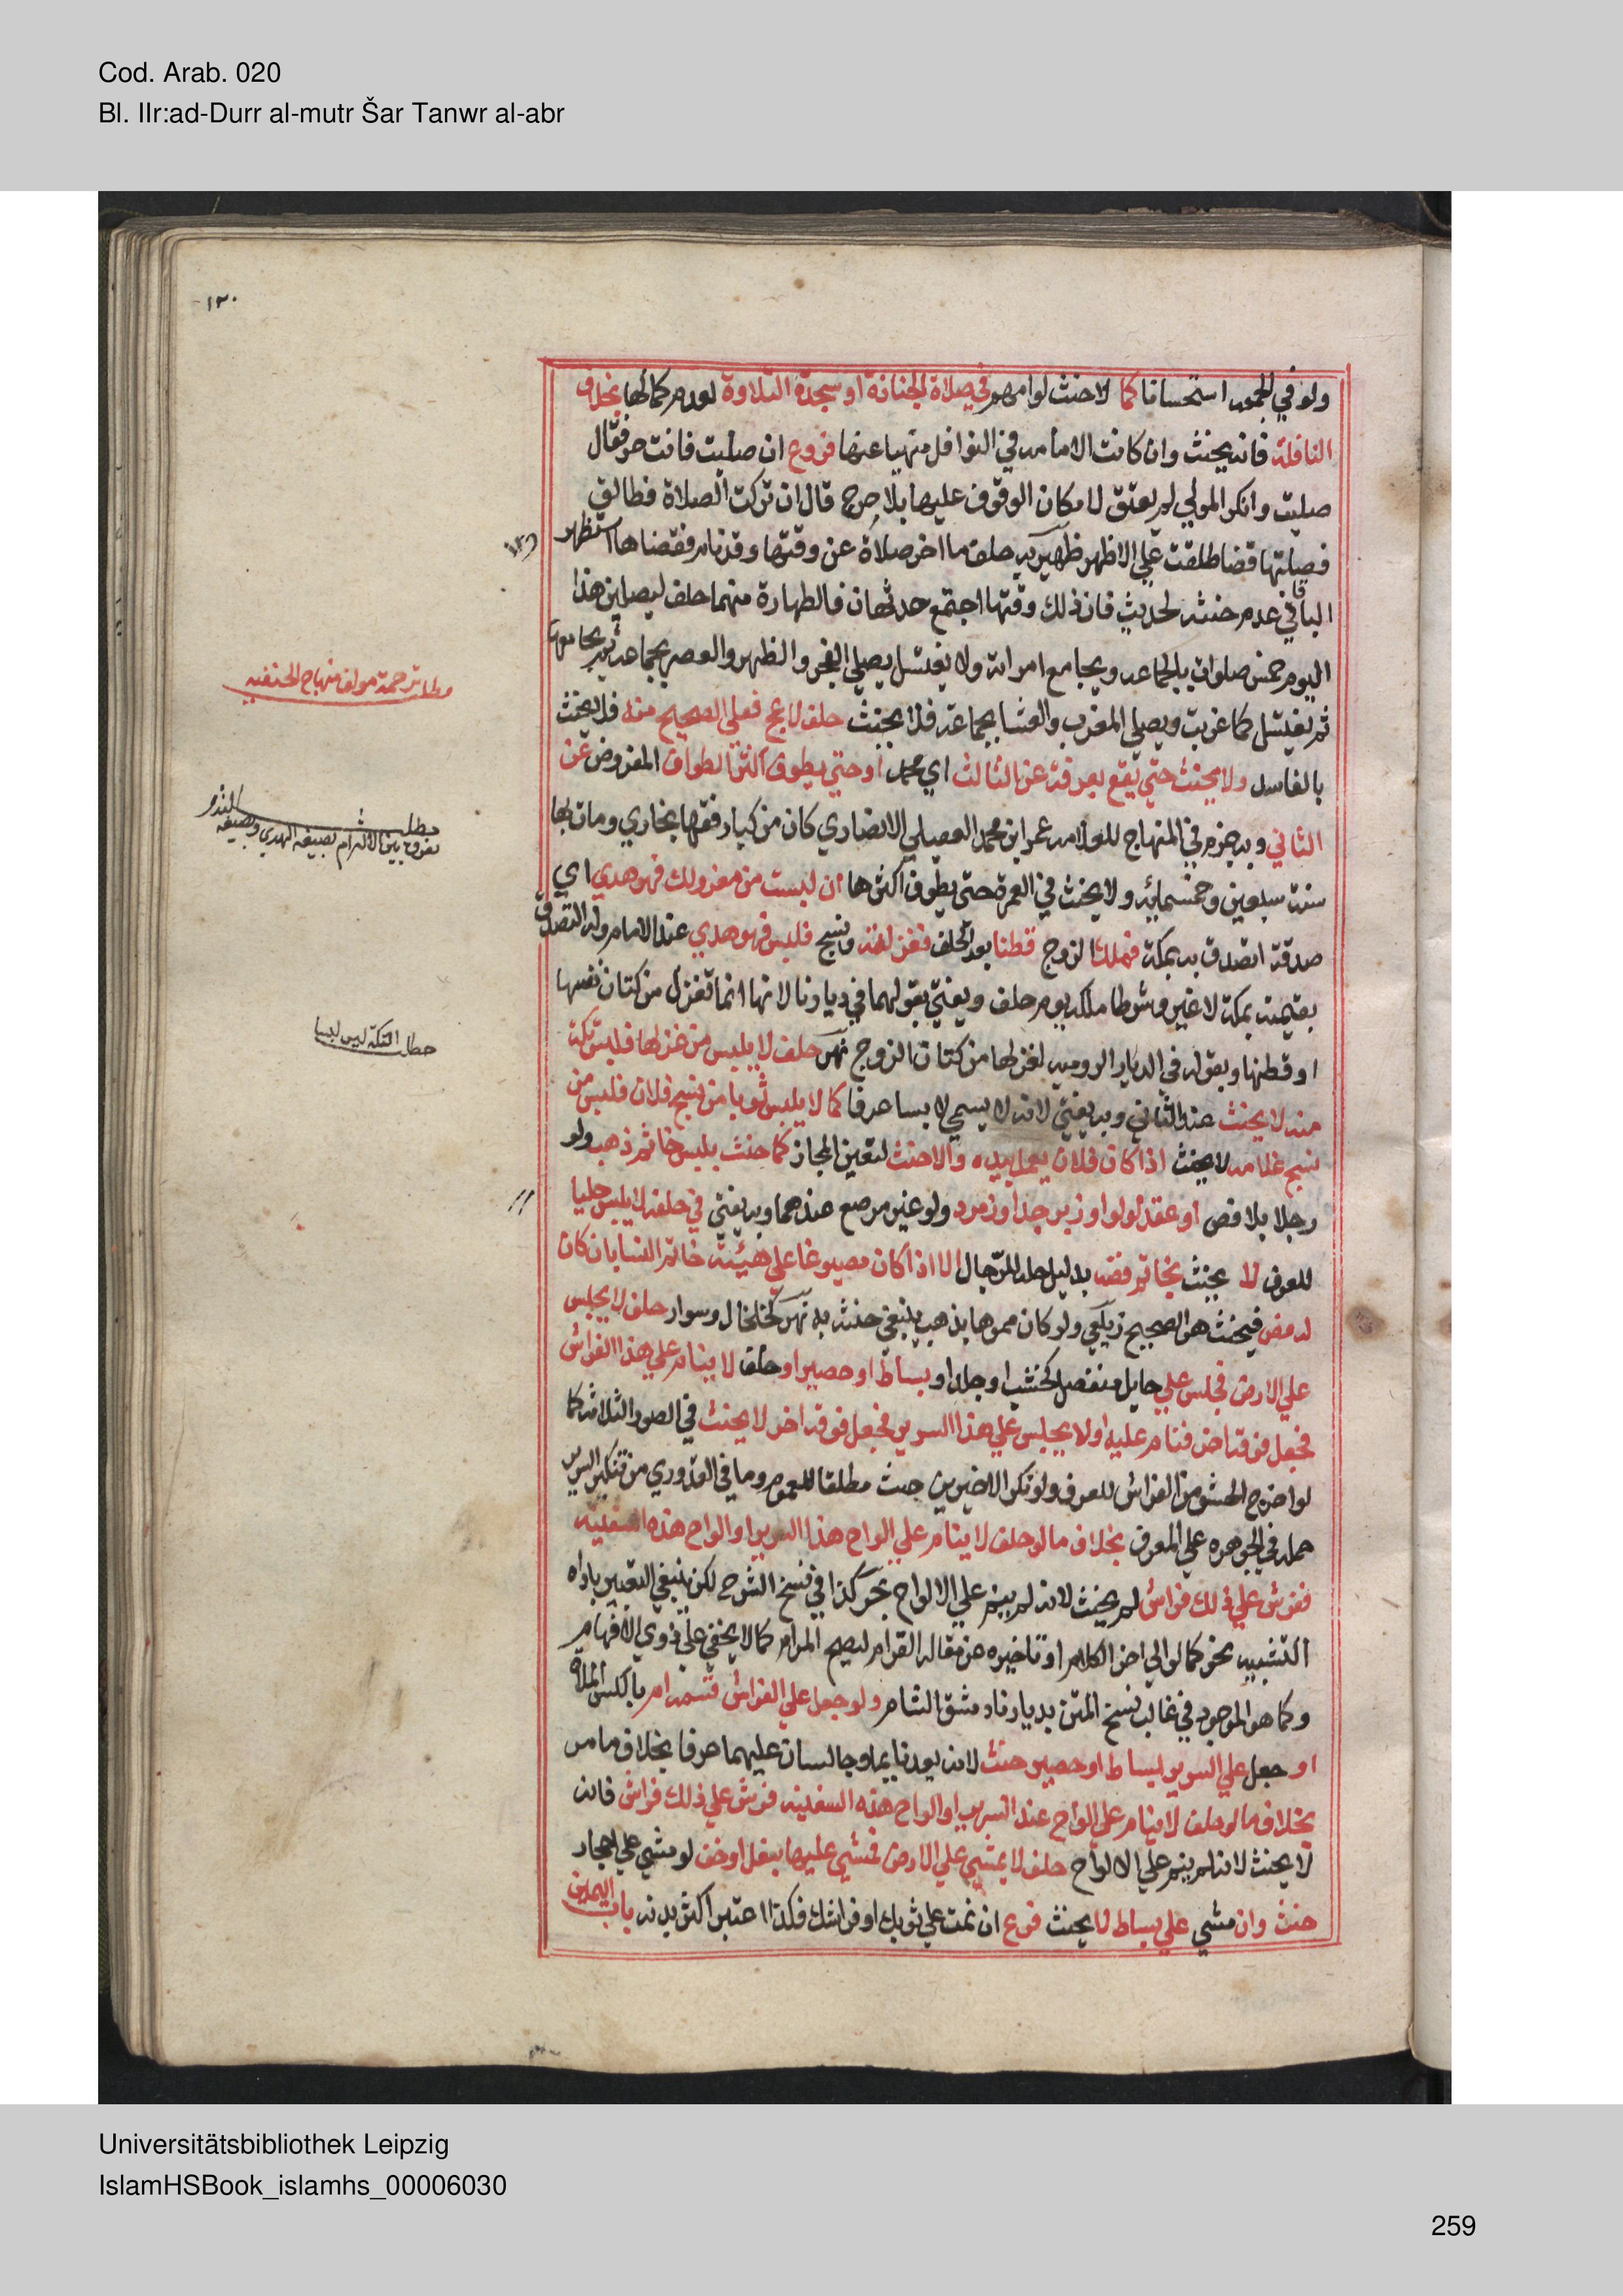 Cod. Arab. 020
Bl. IIr:ad-Durr al-mutr Šar Tanwr al-abr
١٣٠
ولو في الجمعه استحسانا كما لا حنث لو امهم في صلاة الجنازة او سجدة التلاوة لعدم كمالها بخلاف
النافلة فانه يحنث وان كانت الامامه في النوافل منهيا عنها فروع ان صليت فانت حر فقال
صليت وانكر المولي لم يعتق لامكان الوقوف عليها بلا حرج قال ان تركت الصلاة فطالق
فصلتها قضا طلقت علي الاظهر ظهيريه حلف ما اخر صلاة عن وقتها وقد نام فقضاها استظهر
الباقاني عدم حنثه لحديث فان ذلك وقتها اجتمع حدثان فالطهارة منهما حلف ليصلين هذا
اليوم خمس صلوات بالجماعه ويجامع امراته ولا يغتسل يصلي الفجر والظهر والعصر بجماعه ثم يجامعها
ثم يغتسل كما غربت ويصلي المغرب والعشا بجماعة فلا يحنث حلف لا يحج فعلي الصحيح منه فلا يحنث
بالفاسد ولا يحنث حتي يقع بعرفة عن الثالث اي محمد او حتي يطوف اكثر الطواف المفروض عن
الثاني وبه جزم في المنهاج للعلامه عمر ابن محمد العقيلي الانصاري كان من كبار فقها بخاري ومات بها
سنة سبعين وخمسمائه ولا يحنث في العمرة حتي يطوف اكثرها ان لبست من مغزولك فهو هدي اي
صدقة اتصدق به بمكة فملك الزوج قطنا بعد الحلف فغزلته ونسج فلبس فهو هدي عند الامام وله التصدق
بقيمته بمكة لا غير وشرطا ملكه يوم حلف ويفتي بقولهما في ديارنا لانها انما تغزل من كتان نفسها
او قطنها وبقوله في الديار الروميه لغزلها من كتان الزوج نهر حلف لا يلبس من غزلها فلبس تكة
منه لا يحنث عند الثاني وبه يفتي لانه لا يسمي لابسا عرفا كما لا يلبس ثوبا من نسج فلان فلبس من
نسج غلامه لا يحنث اذا كان فلان يعمل بيده والا حنث لتعين المجاز كما حنث بلبس خاتم ذهب ولو
رجلا بلا فص او عقد لولو او زبرجد او زمرد ولو غير مرصع عندهما وبه يفتي في حلفه لا يلبس حليا
للعرف لا يحنث بخاتم فضه بدليل حله للرجال الا اذا كان مصوغا علي هيئة خاتم النسا بان كان
له فص فيحنث هو الصحيح زيلعي ولو كان مموها بذهب ينبغي حنثه به نهر كخلخال وسوار حلف لا يجلس
علي الارض فجلس علي حايل منفصل كخشب او جلد او بساط او حصير او حلف لا ينام علي هذا الفراش
فجعل فوقه اخر فنام عليه او لا يجلس علي هذا السرير فجعل فوقه اخر لا يحنث في الصور الثلاثة كما
لو اخرج الحشو من الفراش للعرف ولو نكر الاخيرين حنث مطلقا للعموم وما في القدوري من تنكير السرير
حمله في الجوهره علي المعرف بخلاف ما لو حلف لا ينام علي الواح هذا السرير او الواح هذه السفينه
ففرش علي ذلك فراش لم يحنث لانه لم ينم علي الالواح بحر كذا في نسخ الشرح لكن ينبغي التعبير باداه
التشبيه نحو كما لو الي اخر الكلام او تاخيره عن مقاله القرام ليصح المرام كما لا يخفي علي ذوي الافهام
وكما هو الموجود في غالب نسخ المتن بديارنا دمشق الشام ولو جعل علي الفراش قسمه رام بالكسر الملاة
او جعل علي السرير بساط او حصير حنث لانه يعد نايما وجالسا عليهما عرفا بخلاف ما مر
بخلاف ما لو حلف لا ينام علي الواح عند السرير او الواح هذه السفينه فرش علي ذلك فراش فانه
لا يحنث لانه لم ينم علي الالواح حلف لا يمشي علي الارض فمشي عليها بنعل او خف لو مشي علي احجار
حنث وان مشي علي بساط لا يحنث فرع ان نمت علي ثوبك او فراشك فكذا اعتبر اكثر بدنه باب اليمين
مطلب ترجمة مولف منهاج الحنفيه
مطلب
يفرق بين الالتزام بصيغه الهدي وبصيغه النذر
مطلب التكة ليس لبسا
Universitätsbibliothek Leipzig
IslamHSBook_islamhs_00006030
259